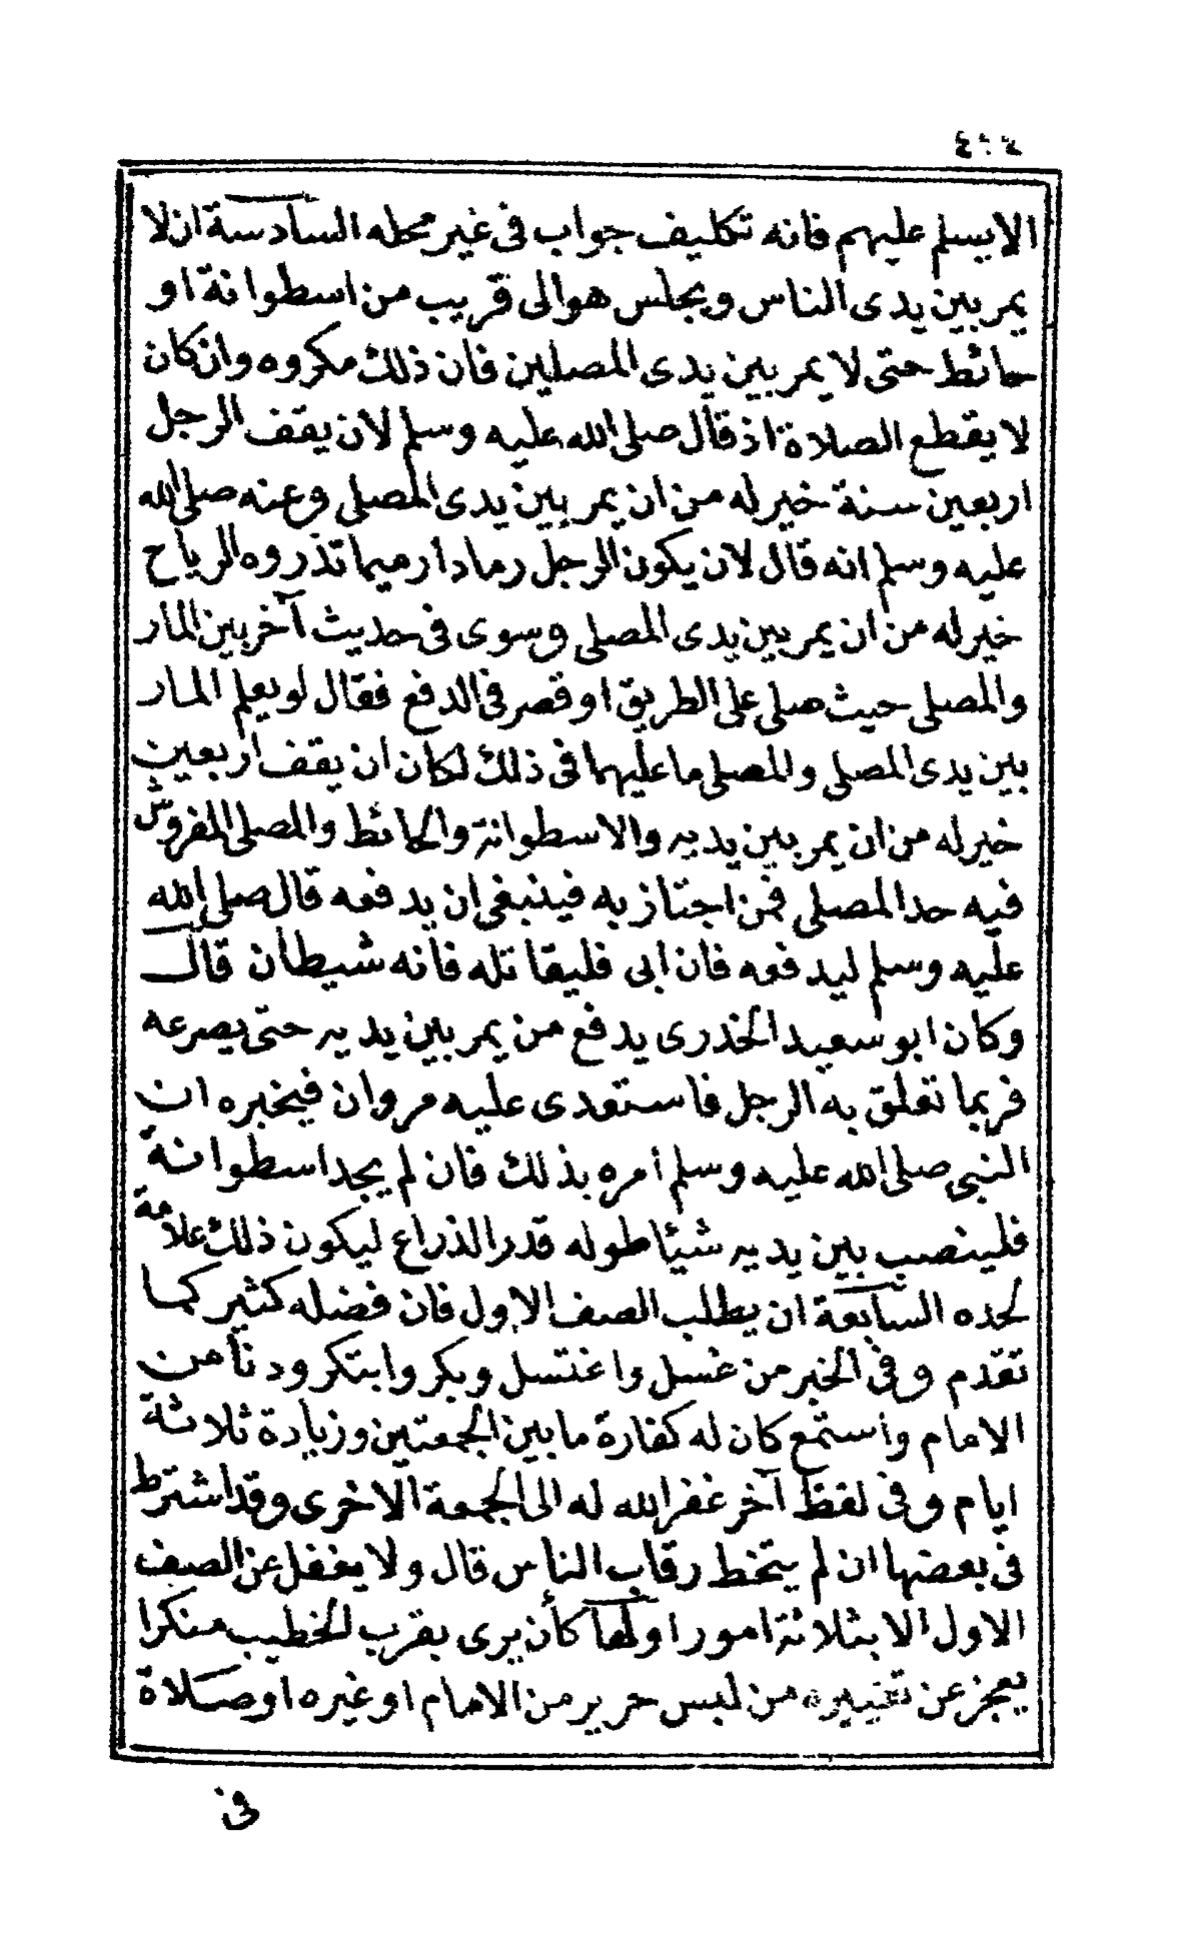 الايسلم عليهم فانه تكليف جواب فى غير محله السادسة ان لا
يمر بين يدى الناس ويجلس هو الى قريب من اسطوانة او
حائط حتى لا يمر بين يدى المصلين فان ذلك مكروه وان كان
لا يقطع الصلاة اذ قال صلى الله عليه وسلم لان يقف الرجل
اربعين سنة خير له من ان يمر بين يدى المصلى وعنه صلى الله
عليه وسلم انه قال لان يكون الرجل رمادا رميما تذروه الرياح
خير له من ان يمر بين يدى المصلى وسوى فى حديث آخر بين المار
والمصلى حيث صلى على الطريق او قصر فى الدفع فقال لو يعلم المار
بين يدى المصلى والمصلى ما عليهما فى ذلك لكان ان يقف اربعين
خير له من ان يمر بين يديه والاسطوانة والحائط والمصلى المفروش
فيه حد المصلى فمن اجتاز به فينبغى ان يدفعه قال صلى الله
عليه وسلم ليدفعه فان ابى فليقاتله فانه شيطان قال
وكان ابو سعيد الخدرى يدفع من يمر بين يديه حتى يصرعه
فربما تعلق به الرجل فاستعدى عليه مروان فيخبره ان
النبى صلى الله عليه وسلم أمره بذلك فان لم يجد اسطوانة
فلينصب بين يديه شيئا طوله قدر الذراع ليكون ذلك علامة
لحده السابعة ان يطلب الصف الاول فان فضله كثير كما
تقدم وفى الخبر من غسل واغتسل وبكر وابتكر ودنا من
الامام واستمع كان له كفارة ما بين الجمعتين وزيادة ثلاثة
ايام وفى لفظ آخر غفر الله له الى الجمعة الاخرى وقد اشترط
فى بعضها ان لم يتخط رقاب الناس قال ولا يغفل عن الصف
الاول الا بثلاثة امور اولها كأن يرى بقرب الخطيب منكرا
يعجز عن تغييره من لبس حرير من الامام او غيره او صلاة
فى